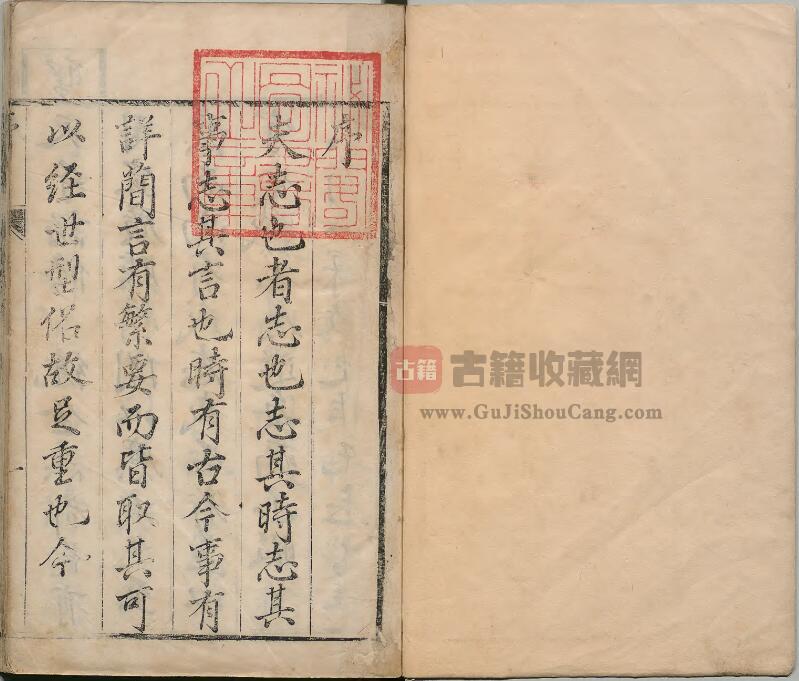 序
夫志也者志也志其時志其
事志其言也時有古今事有
詳簡言有繁要而皆取其可
以経世型俗故足重也今
一
古籍
古籍收藏網
www.GuJiShouCang.com